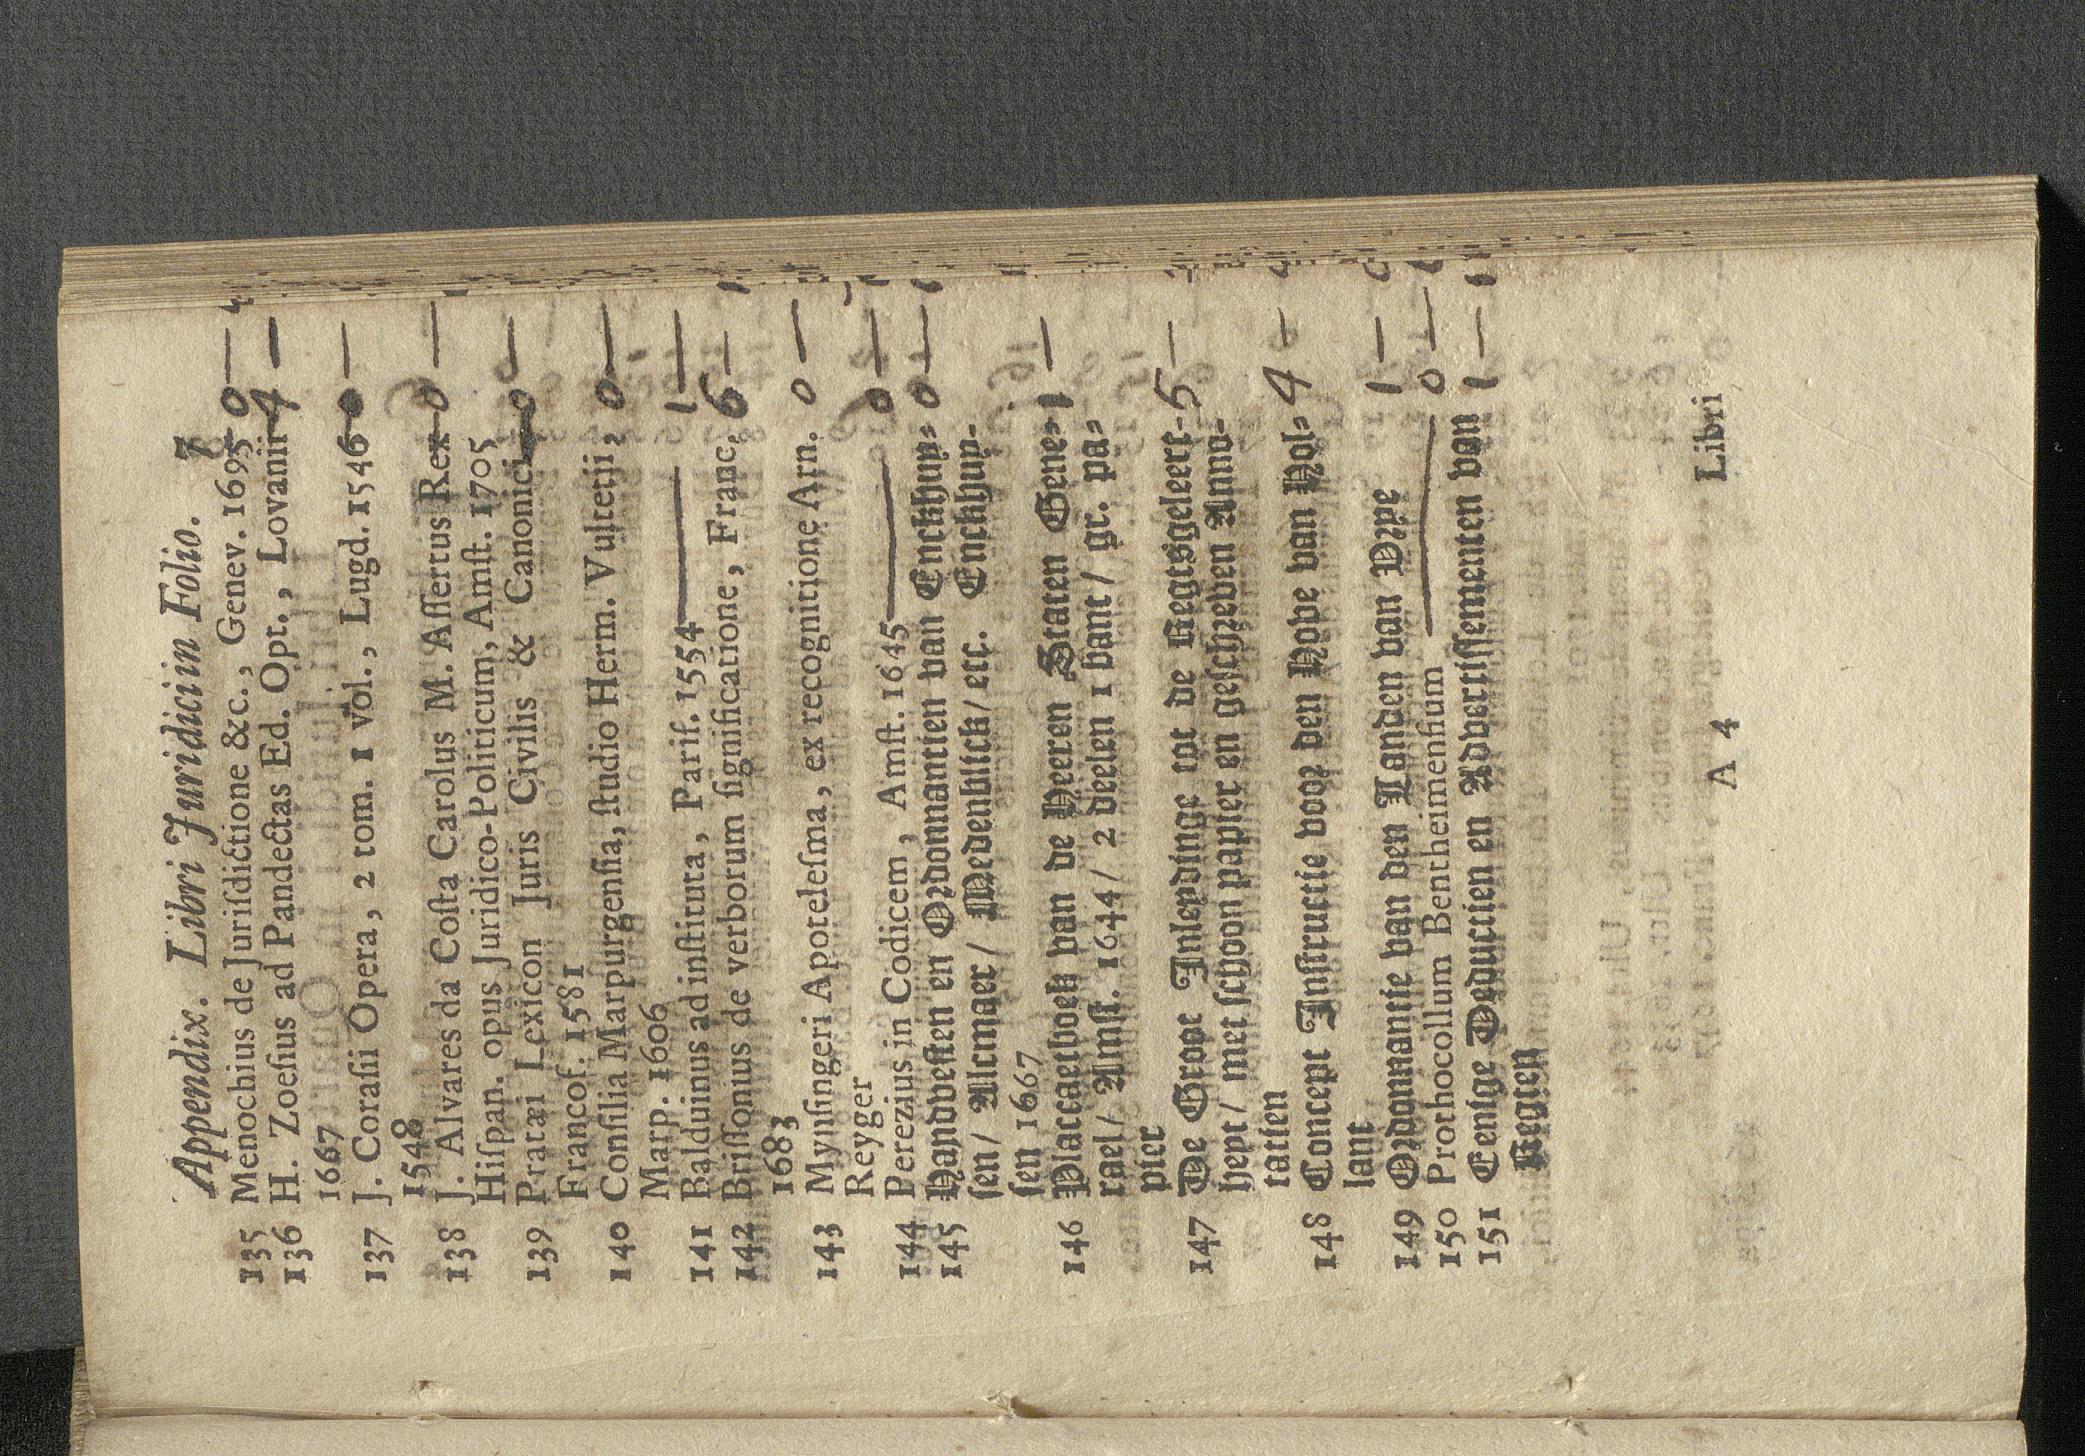 Appendix. Libri Juridici in Folio. 7
135 Menochius de Jurisdictione &c., Genev. 1695 0 —
136 H. Zoesius ad Pandectas Ed. Opt., Lovanii 4 —
1667
137 J. Corasii Opera, 2 tom. 1 vol., Lugd. 1546 0 —
1548
138 J. Alvares da Costa Carolus M. Assertus Rex 0 —
Hispan. opus Juridico-Politicum, Amst. 1705
139 Pratæi Lexicon Juris Civilis & Canonici 0 —
Francof. 1581
140 Consilia Marpurgensia, studio Herm. Vulteii, 0 —
Marp. 1606
141 Balduinus ad instituta, Paris. 1554 — 1 —
142 Brissonius de verborum significatione, Franc. 6 —
1683
143 Mynsingeri Apotelesma, ex recognitione Arn. 0 —
Reyger
144 Perezius in Codicem, Amst. 1645 — 0 —
145 Handvesten en Ordonnantien van Enckhuy= 0 —
sen / Alcmaer / Medenblick / etc. Enckhuy-
sen 1667
146 Placcaetboek van de Heeren Staten Gene= 1 —
rael / Amst. 1644 / 2 deelen 1 bant / gr. pa=
pier
147 De Groot Inleydinge tot de Regtsgeleert- 5 —
heyt / met schoon papier en geschreven Anno-
tatien
148 Concept Instructie voor den Hove van Hol= 4 —
lant
149 Ordonnantie van den Landen van Vrye 1 —
150 Prothocollum Bentheimensium — 0 —
151 Eenige Deductien en Advertissementen van 1 —
Regten
A 4 Libri